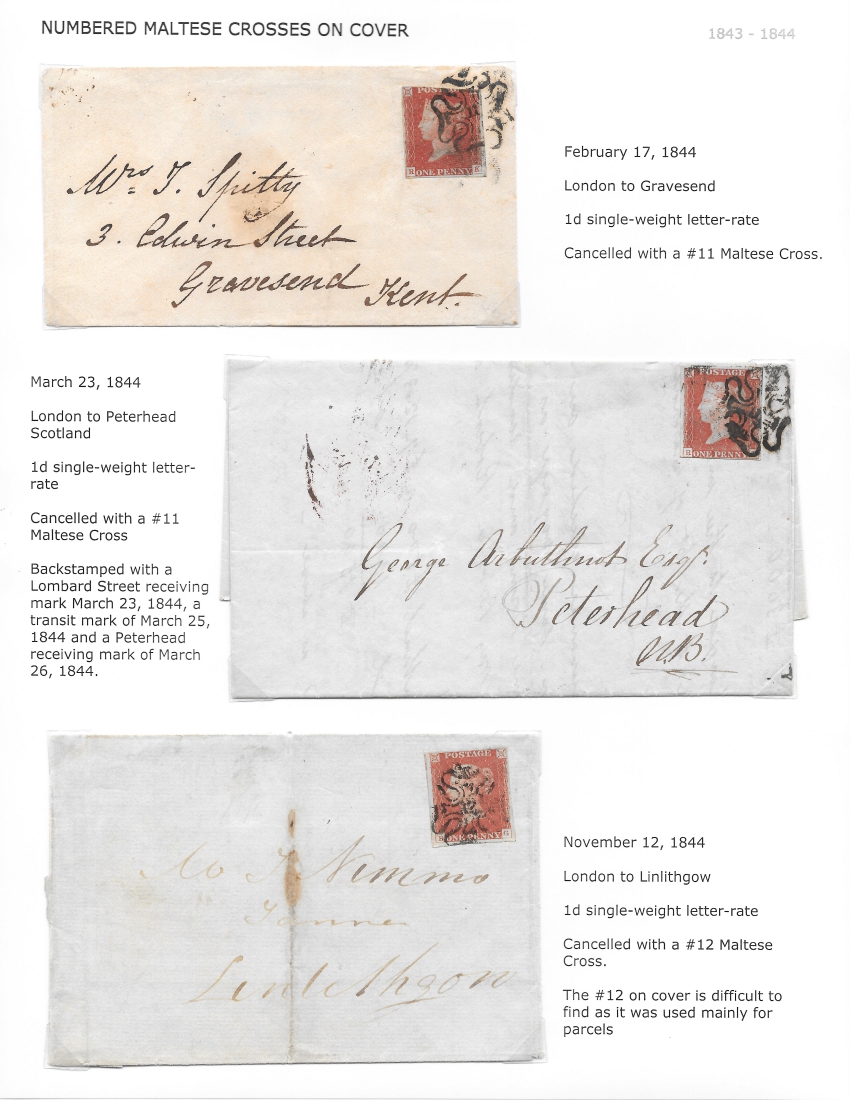 NUMBERED MALTESE CROSSES ON COVER
1843 - 1844
POSTAGE
ONE PENNY
Mrs T. Spitty
3. Edwin Street
Gravesend Kent.
February 17, 1844
London to Gravesend
1d single-weight letter-rate
Cancelled with a #11 Maltese Cross.
March 23, 1844
London to Peterhead
Scotland
1d single-weight letter-
rate
Cancelled with a #11
Maltese Cross
Backstamped with a
Lombard Street receiving
mark March 23, 1844, a
transit mark of March 25,
1844 and a Peterhead
receiving mark of March
26, 1844.
POSTAGE
ONE PENNY
George Arbuthnot Esqr.
Peterhead
N.B.
POSTAGE
ONE PENNY
12
Nimmo
Tanner
Linlithgow
November 12, 1844
London to Linlithgow
1d single-weight letter-rate
Cancelled with a #12 Maltese
Cross.
The #12 on cover is difficult to
find as it was used mainly for
parcels